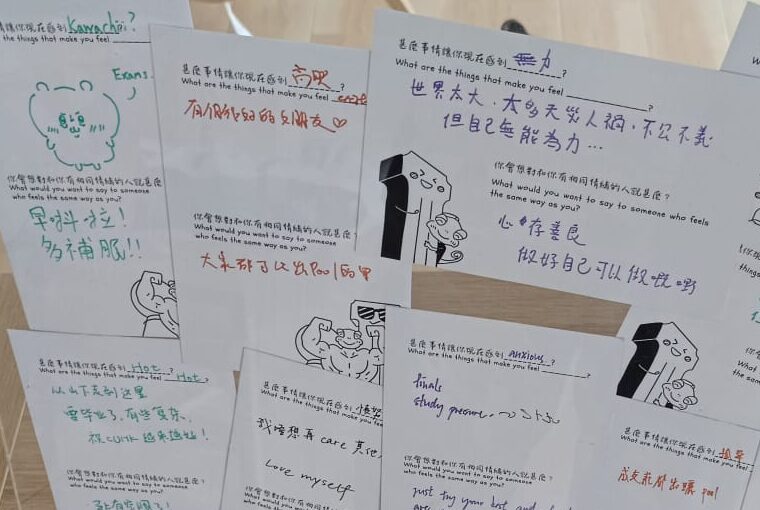 甚麼事情讓你現在感到 Kawachii?
are the things that make you feel
Exams
你會想對和你有相同情緒的人說甚麼?
What would you want to say to someone
who feels the same way as you?
早抖啦!
多補眠!!
甚麼事情讓你現在感到 高興?
What are the things that make you feel
有個很好的女朋友♡
你會想對和你有相同情緒的人說甚麼?
What would you want to say to someone
who feels the same way as you?
大家都可以出pool的
甚麼事情讓你現在感到 無力?
What are the things that make you feel ?
世界太大,太多天災人禍,不公不義
但自己無能為力...
你會想對和你有相同情緒的人說甚麼?
What would you want to say to someone who feels
the same way as you?
心存善良
做好自己可以做嘅嘢
甚麼事情讓你現在感到 Hot ?
What are the things that make you feel Hot ?
从山下走到这里
要毕业了,有些
祝CUHK越来越好!
你會想對和你有相同情緒的人說甚麼?
What would you want to say to someone
who feels the same way as you?
甚麼事情讓你現在感到
What are the things that make you feel
我唔想再care其他
Love myself
你會想對和你有相同情緒的人說甚麼?
What would you want to say to someone
甚麼事情讓你現在感到 Anxious ?
What are the things that make you feel ?
finals
study pressure.
你會想對和你有相同情緒的人說甚麼?
What would you want to say to someone who feels
the same way as you?
just try your best and
甚麼事情讓你現在感到
What are the things that make you feel
pool
你會想對和你有相同情緒的人說甚麼?
What would you want to say to someone
the same way as you?